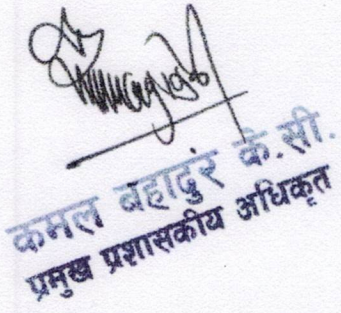 कमल बहादुर के.सी.
प्रमुख प्रशासकीय अधिकृत